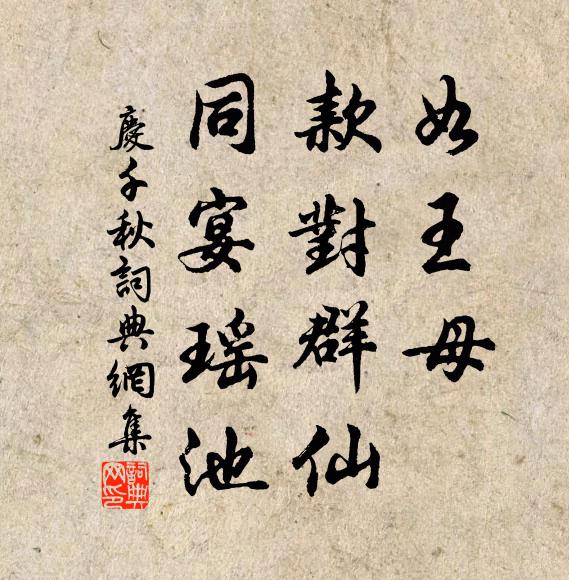 如王母
款對群仙
同宴瑤池
慶千秋詞典網集
詞典网印